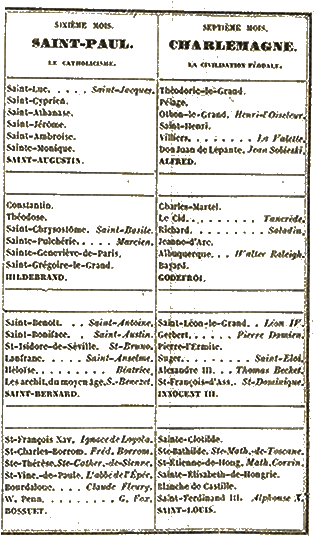 SIXIÈME MOIS.
SAINT-PAUL.
LE CATHOLICISME.
Saint-Luc. . . . . Saint-Jacques.
Saint-Cyprien.
Saint-Athanase.
Saint-Jérôme.
Saint-Ambroise.
Sainte-Monique.
SAINT-AUGUSTIN.
Constantin.
Théodose.
Saint-Chrysostôme. Saint-Basile.
Sainte-Pulchérie. . . . . Marcien.
Sainte-Geneviève-de-Paris.
Saint-Grégoire-le-Grand.
HILDEBRAND.
Saint-Benoît. . . Saint-Antoine.
Saint-Boniface. . Saint-Austin.
St-Isidore-de-Séville. St-Bruno.
Lanfranc. . . . Saint-Anselme.
Héloïse. . . . . . . . Béatrice.
Les archit. du moyen âge. S. Benezet.
SAINT-BERNARD.
St-François Xav. Ignace de Loyola.
St-Charles-Borrom. Fréd. Borrom.
Ste-Thérèse. Ste-Cather.-de-Sienne.
St-Vinc.-de-Paule. L'abbé de l'Épée.
Bourdaloue. . . Claude Fleury.
W. Penn. . . . . . . . G. Fox.
BOSSUET.
SEPTIÈME MOIS.
CHARLEMAGNE.
LA CIVILISATION FÉODALE.
Théodoric-le-Grand.
Pélage.
Othon-le-Grand. Henri-l'Oiseleur.
Saint-Henri.
Villiers. . . . . . . . La Valette.
Don Juan de Lépante. Jean Sobieski.
ALFRED.
Charles-Martel.
Le Cid. . . . . . . . . Tancrède.
Richard. . . . . . . . . Saladin.
Jeanne-d'Arc.
Albuquerque. . . Walter Raleigh.
Bayard.
GODEFROI.
Saint-Léon-le-Grand. . Léon IV.
Gerbert. . . . . Pierre Damien.
Pierre-l'Ermite.
Suger. . . . . . . . . Saint-Eloi.
Alexandre III. . Thomas Becket.
St-François-d'Ass. . St-Dominique.
INNOCENT III.
Sainte-Clotilde.
Ste-Bathilde. Ste-Math.-de-Toscane.
St-Étienne-de-Hong. Math. Corvin.
Sainte-Élisabeth-de-Hongrie.
Blanche de Castille.
Saint-Ferdinand III. Alphonse X.
SAINT-LOUIS.